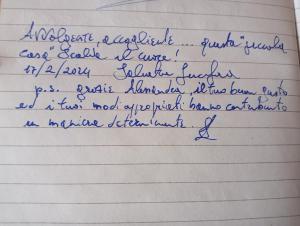 AVVOLGENTE, accogliente ... questa "piccola
casa" scalda il cuore!
17/2/2024 Salvatore
p.s. grazie Alessandra, il tuo buon gusto
ed i tuoi modi appropriati hanno contribuito
in maniera determinante.